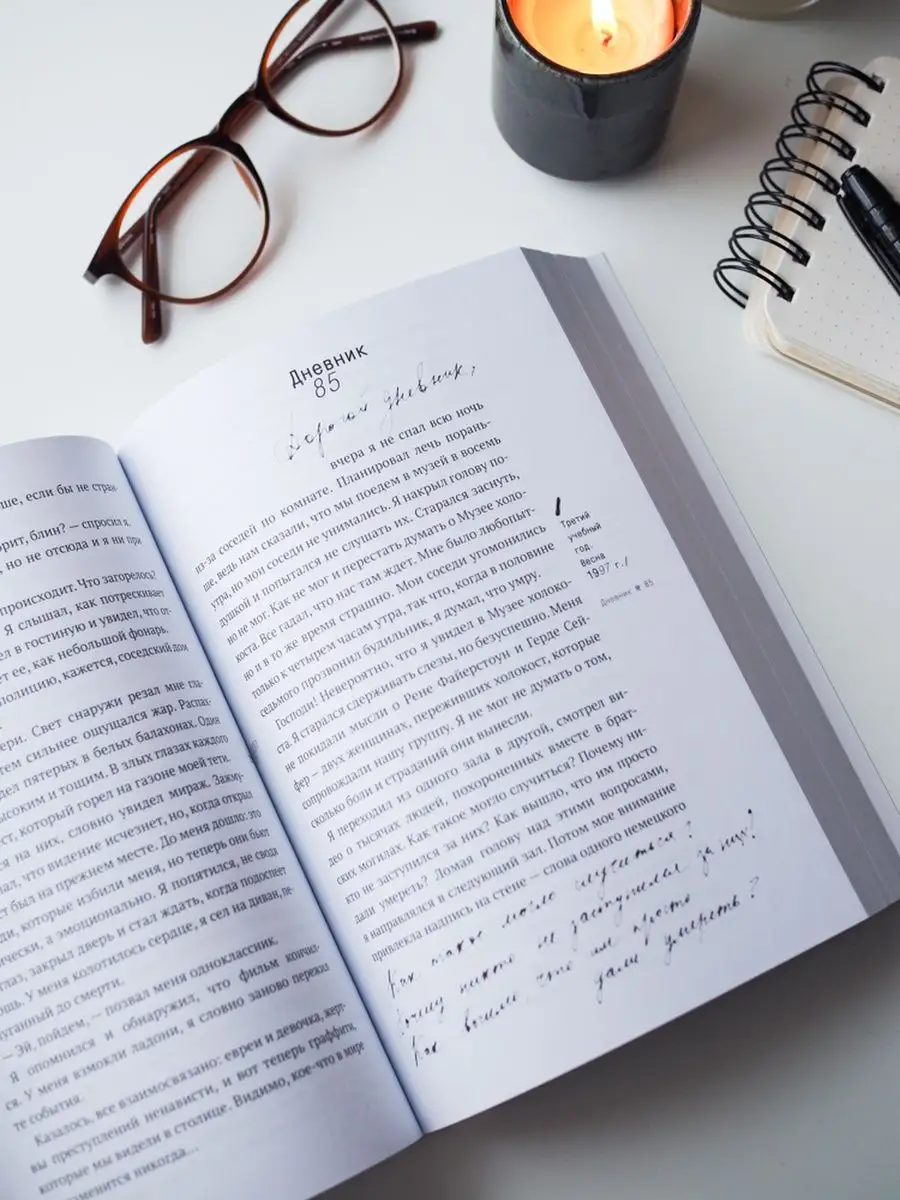 ше, если бы не стран-
орит, блин? — спросил я.
, но не отсюда и я ни при
происходит. Что загорелось?
Я слышал, как потрескивает
ел в гостиную и увидел, что от-
ет ее, как небольшой фонарь.
полицию, кажется, соседский дом
ери. Свет снаружи резал мне гла-
тем сильнее ощущался жар. Распах-
дел пятерых в белых балахонах. Один
ысоким и тощим. В злых глазах каждого
ст, который горел на газоне моей тети.
ся на них, словно увидел мираж. Зажму-
ал, что видение исчезнет, но, когда открыл
ст был на прежнем месте. До меня дошло: это
ди, которые избили меня, но теперь они бьют
ически, а эмоционально. Я попятился, не сводя
глаз, закрыл дверь и стал ждать, когда подоспеет
ощь. У меня колотилось сердце, я сел на диван, пе-
уганный до смерти.
— Эй, пойдем, — позвал меня одноклассник.
Я опомнился и обнаружил, что фильм кончил-
ся. У меня взмокли ладони, я словно заново пережил
те события.
Казалось, все взаимосвязано: евреи и девочка, жерт-
вы преступлений ненависти, и вот теперь граффити,
которые мы видели в столице. Видимо, кое-что в мире
заменится никогда...
Дневник
85
Дорогой дневник,
вчера я не спал всю ночь
из-за соседей по комнате. Планировал лечь порань-
ше, ведь нам сказали, что мы поедем в музей в восемь
утра, но мои соседи не унимались. Я накрыл голову по-
душкой и попытался не слушать их. Старался заснуть,
но не мог. Как не мог и перестать думать о Музее холо-
коста. Все гадал, что нас там ждет. Мне было любопыт-
но и в то же время страшно. Мои соседи угомонились
только к четырем часам утра, так что, когда в половине
седьмого прозвонил будильник, я думал, что умру.
Господи! Невероятно, что я увидел в Музее холоко-
ста. Я старался сдерживать слезы, но безуспешно. Меня
не покидали мысли о Рене Файерстоун и Герде Сей-
фер — двух женщинах, переживших холокост, которые
сопровождали нашу группу. Я не мог не думать о том,
сколько боли и страданий они вынесли.
Я переходил из одного зала в другой, смотрел ви-
део о тысячах людей, похороненных вместе в брат-
ских могилах. Как такое могло случиться? Почему ни-
кто не заступился за них? Как вышло, что им просто
дали умереть? Ломая голову над этими вопросами,
я направлялся в следующий зал. Потом мое внимание
привлекла надпись на стене — слова одного немецкого
Как такое могло случиться?
Почему никто не заступился за них?
Как вышло, что им просто
дали умереть?
Третий
учебный
год.
Весна
1997 г. /
Дневник № 85